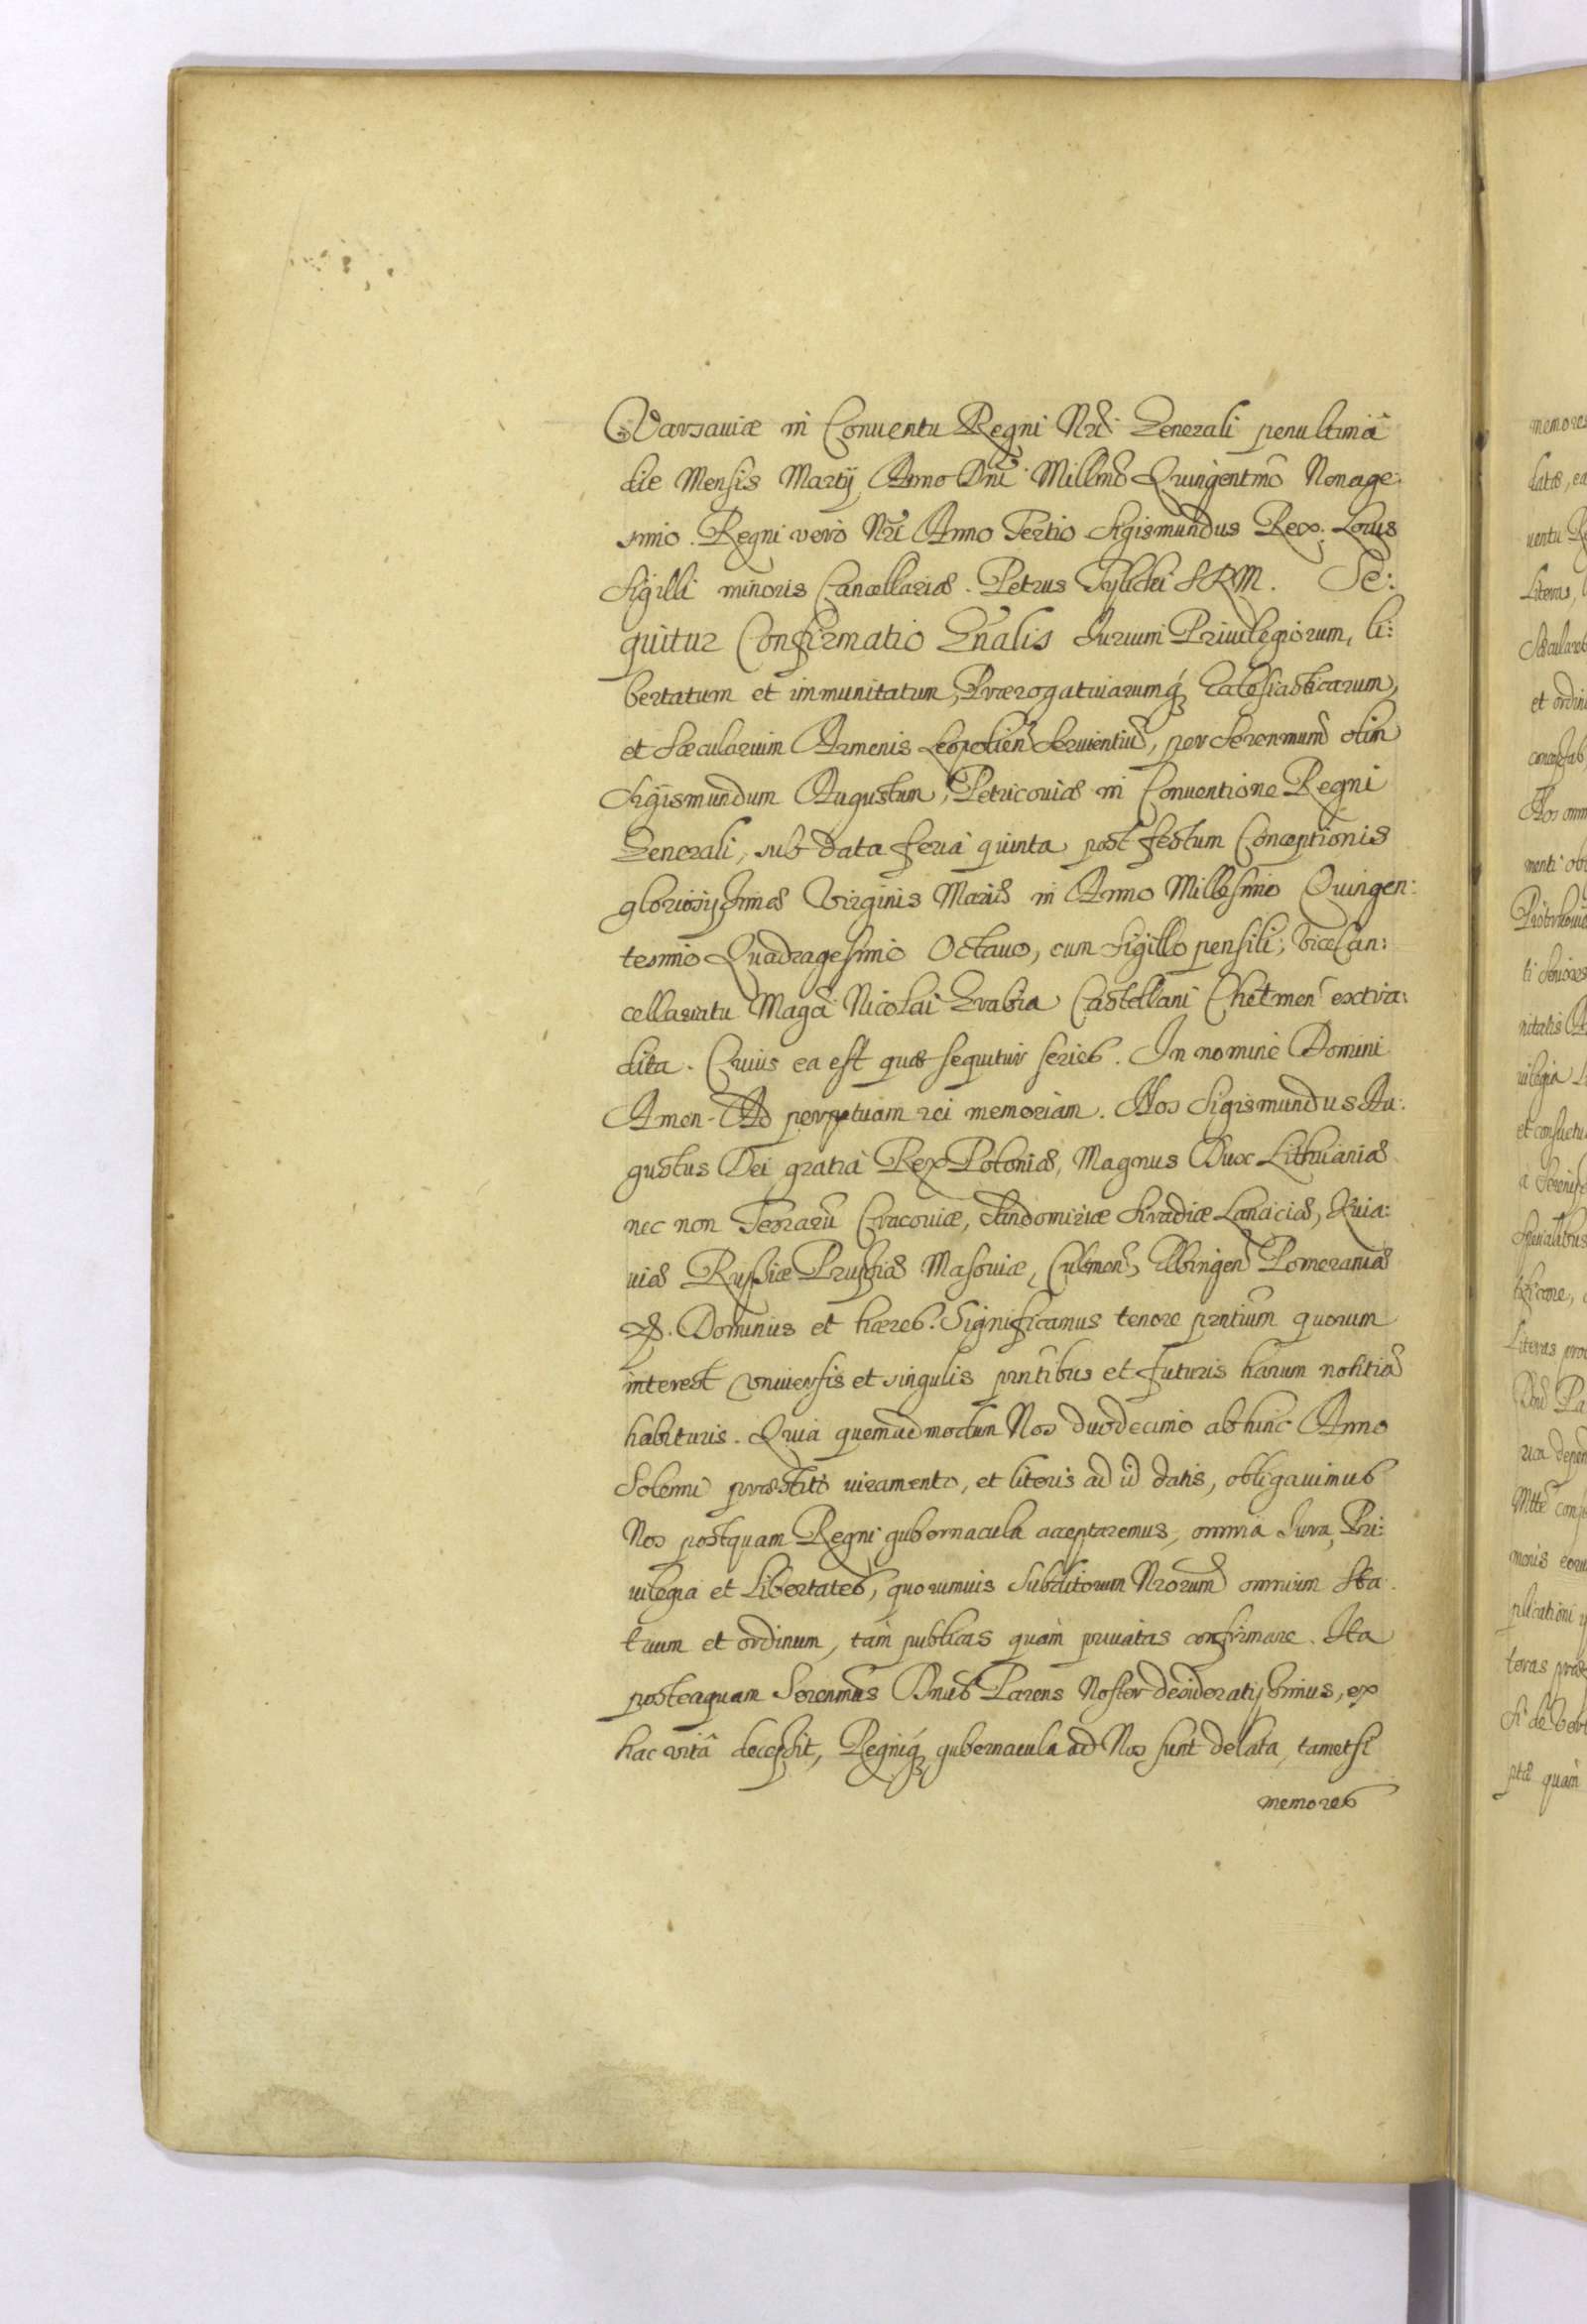 Varsauiæ in Conuentu Regni Nri Generali penultimâ
die Mensis Martij Anno Dni Millmo Quingentmo Nonage:
simo. Regni vero Nri Anno Tertio Sigismundus Rex. Locus
Sigilli minoris Cancellariæ. Petrus Tylicki SRM. Se:
quitur Confirmatio Gnalis Iurium Priuilegiorum, li:
bertatum et immunitatum, Prærogatiuarumq́ Ecclesiasticarum,
et Sæcularium Armenis Leopolien Seruientiũ, per Serenmum olim
Sigismundum Augustum, Petricouiæ in Conuentione Regni
Generali, sub data feria quinta post festum Conceptionis
gloriosissimæ Virginis Mariæ in Anno Millesimo Quingen:
tesimo Quadragesimo Octauo, cum Sigillo pensili, ViceCan:
cellariatu Magci Nicolai Grabia Castellani Chełmen extra:
dita. Cuius ea est quæ sequitur series. In nomine Domini
Amen. Ad perpetuam rei memoriam. Nos Sigismundus Au:
gustus Dei gratia Rex Poloniæ, Magnus Dux Lithuaniæ
nec non Terrarũ Cracouiæ, Sandomiriæ Siradiæ Lanciciæ, Kuia:
uiæ Russiæ Prussiæ Masouiæ, Culmen, Elbingen Pomeraniæ
&. Dominus et hæres. Significamus tenore pntium quorum
interest vniuersis et singulis pntibus et futuris harum notitiã
habituris. Quia quemadmodum Nos duodecimo abhinc Anno
Solenni præstito iuramento, et literis ad id datis, obligauimus
Nos postquam Regni gubernacula acceptaremus, omnia Iura, Pri:
uilegia et Libertates, quorumuis Subditorum Nrorum omnium Sta:
tuum et ordinum, tam publicas quàm priuatas confirmare. Ita
posteaquam Serenmus Dnus Parens Noster desideratissimus, ex
hac vitâ decessit, Regniq́ gubernacula ad Nos sunt delata, tametsi
memores